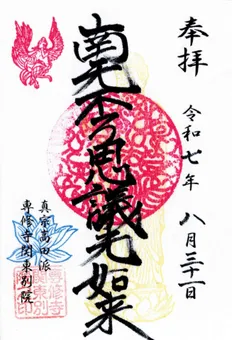 奉拝
令和七年 八月三十一日
南无不可思議光如来
真宗高田派
専修寺関東別院
専修寺関東別院印